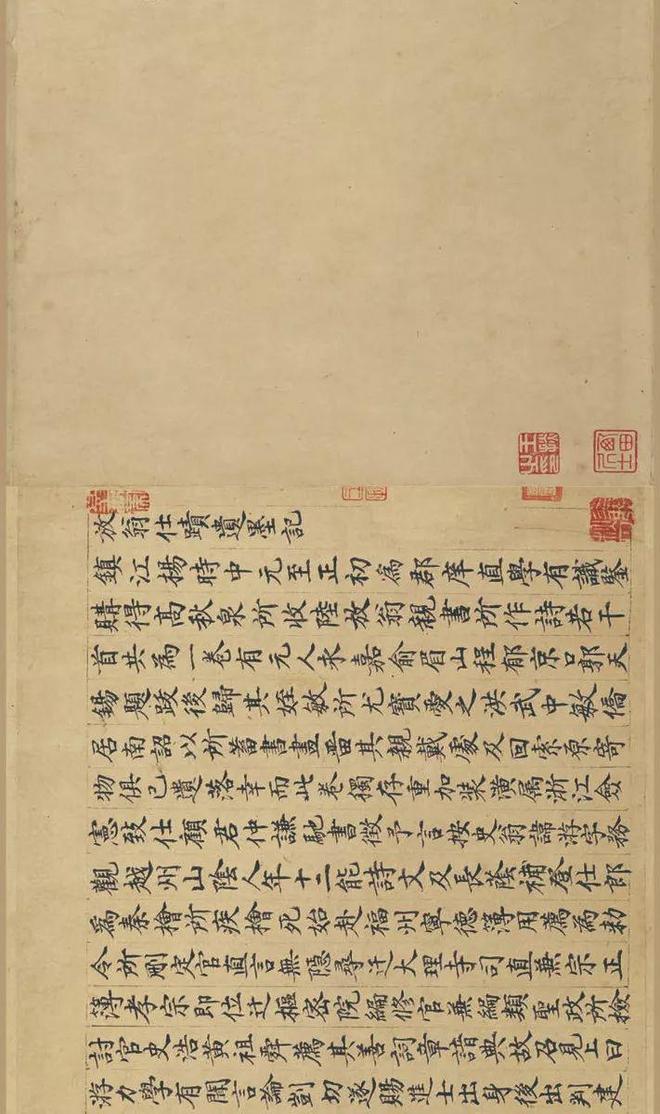 放翁仕蹟遺墨記
鎮江楊時中元至正初為郡庠直學有識鑒
購得高秋泉所收陸放翁親書所作詩若干
首共為一卷有元人永嘉俞眉山程郁京口郭天
錫題跋後歸其姪敏所尤寶愛之洪武中敏僑
居南詔以所蓄書畫畱其親戴處及回索原寄
物俱已遺落幸而此卷獨存重加裝潢属浙江僉
憲致仕顧君仲謙馳書徵予言按史翁諱游字務
觀越州山陰人年十二能詩文及長蔭補登仕郎
為秦檜所疾檜死始赴福州寧德簿用薦為勅
令所刪定官直言無隠尋迁大理寺司直兼宗正
簿孝宗即位迁樞密院編修官兼編類聖政所撿
討官史浩黃祖舜薦其善詞章諳典故召見上曰
游力學有聞言論剴切遂賜進士出身後出判建